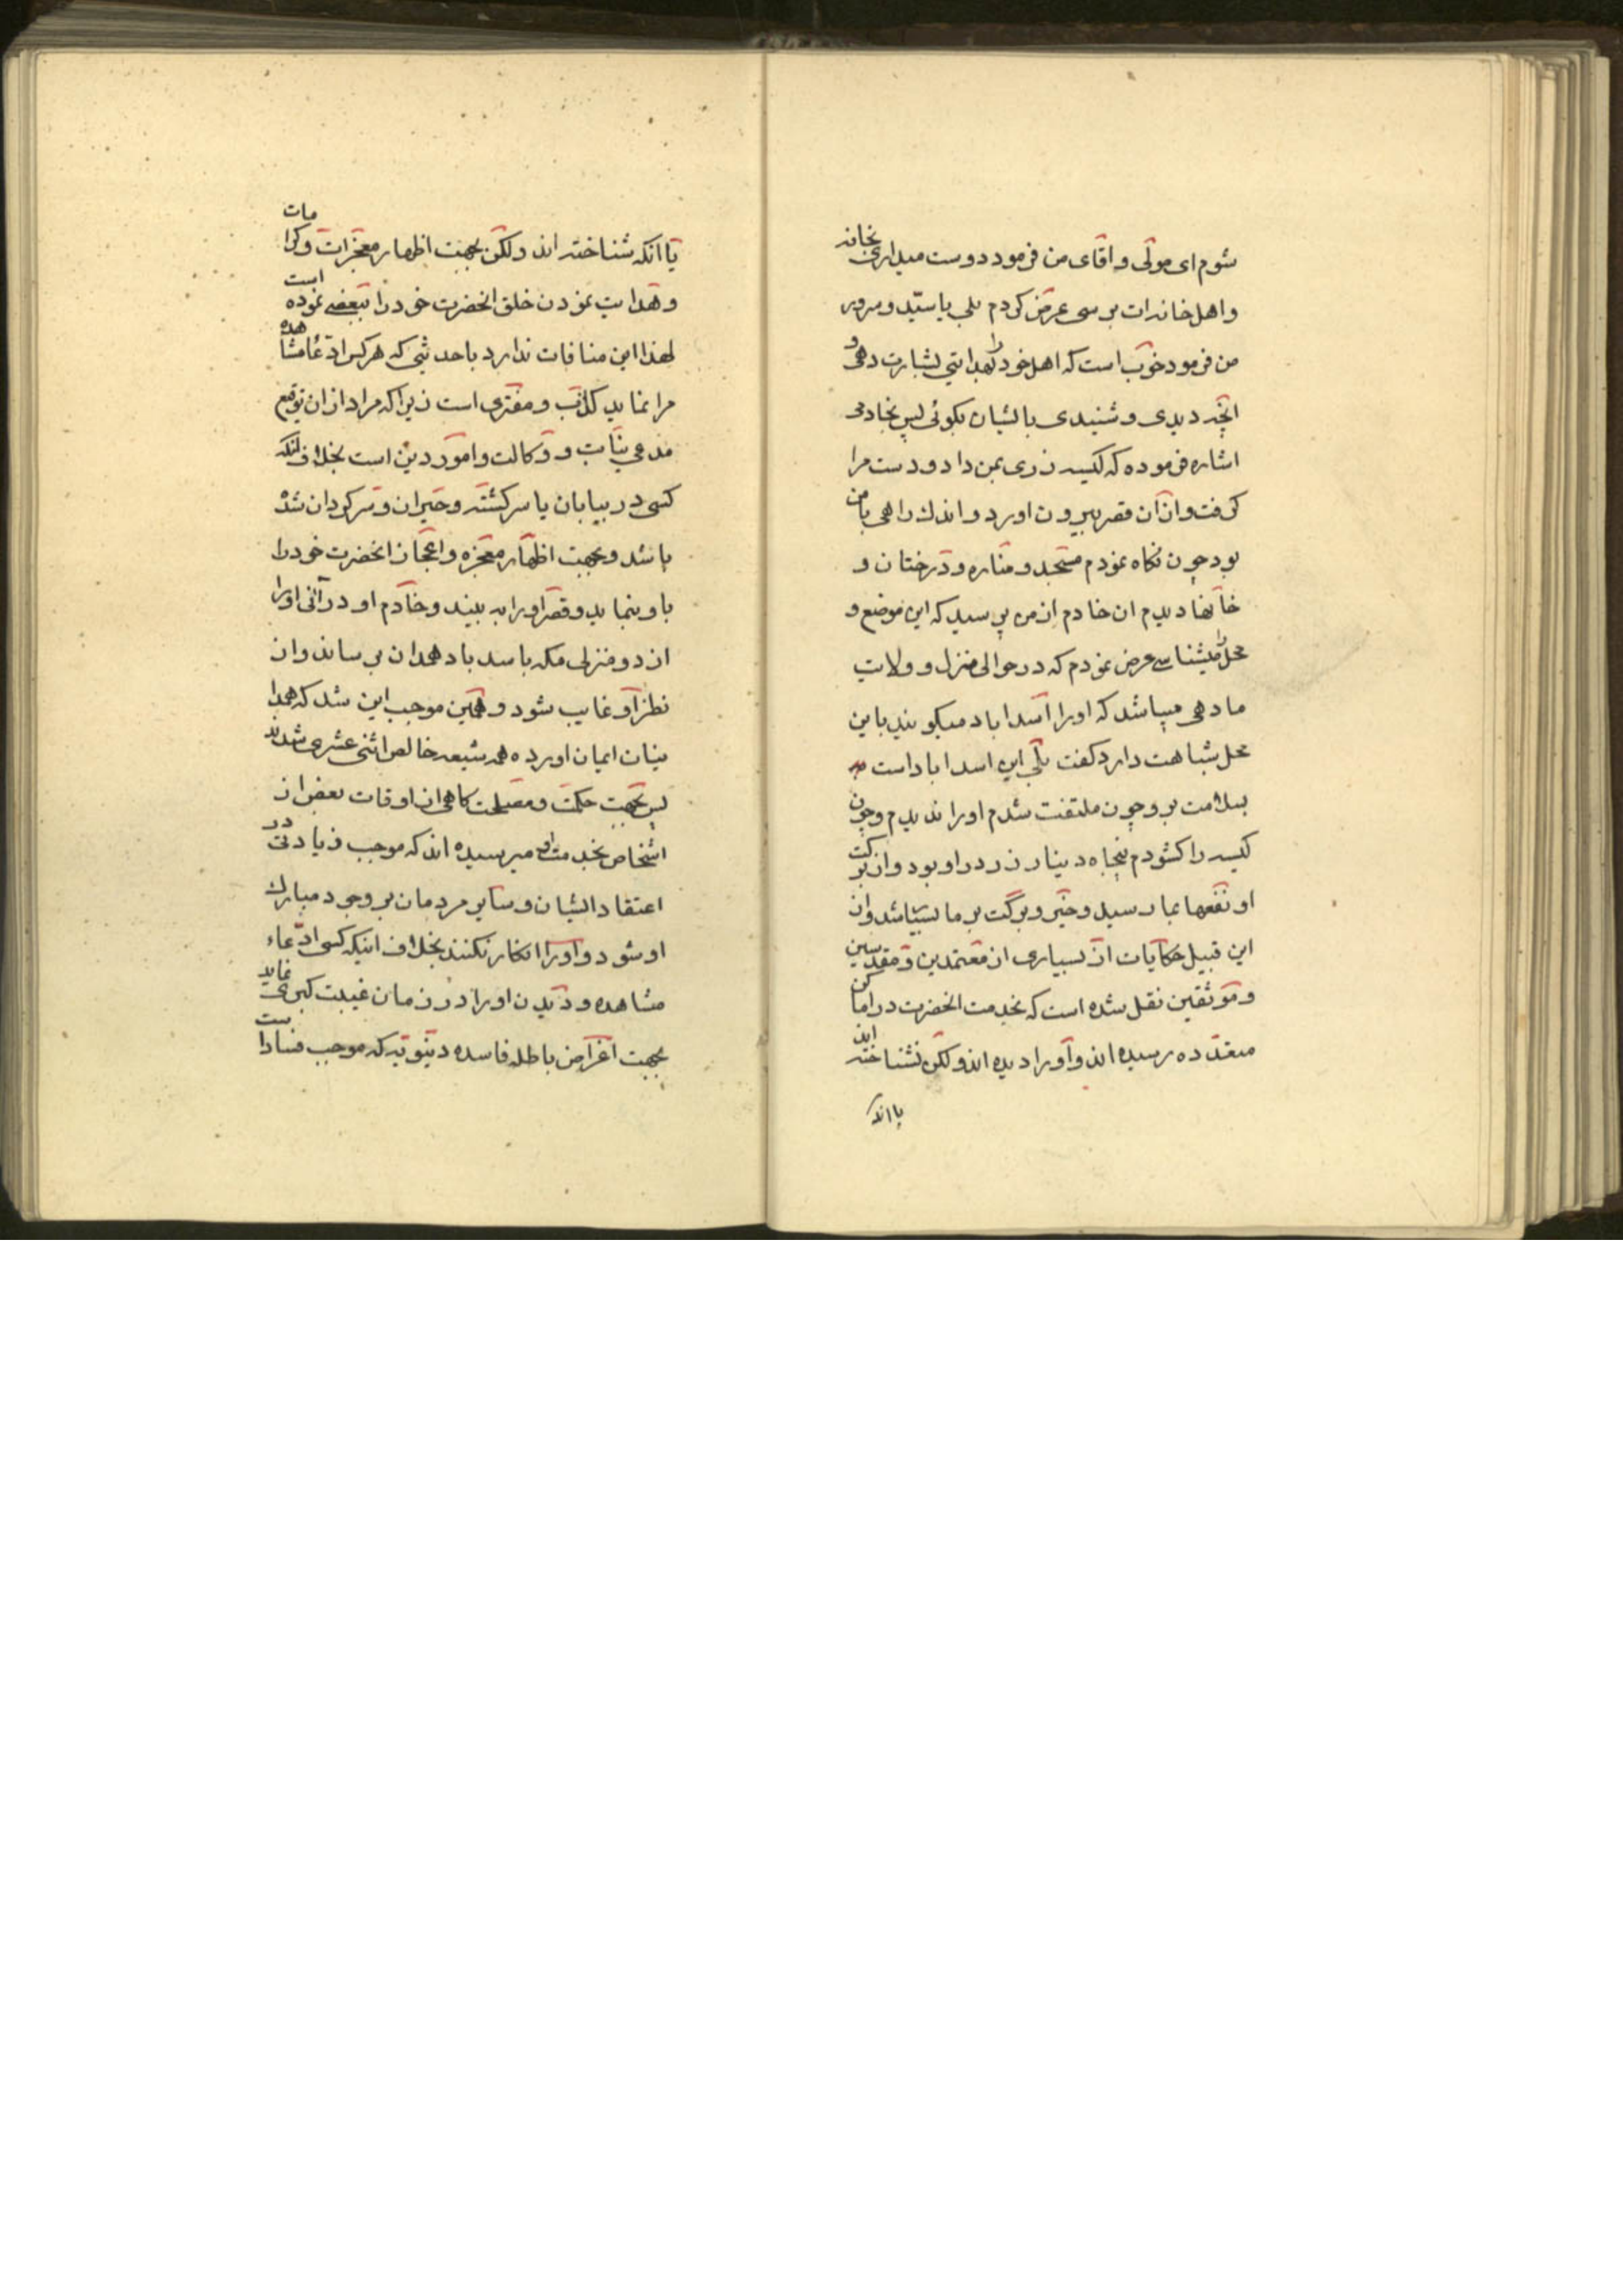 شوم ای مولی و اقای من فرمود دوست میداری بخانه
و اهل خانه ات برسی عرض کردم بلی یا سیّد و سرور
من فرمود خوب است که اهل خود را بهدایتی بشارت دهی و
انچه دیدی و شنیدی بایشان بکوئی پس بخادمی
اشاره فرموده که کیسه زری بمن داد و دست مرا
کرفت و از آن قصر بیرون اورد و اندك راهی با من
بود چون نکاه نمودم مسجد و مناره و درختان و
خانها دیدم ان خادم از من پرسید که این موضع و
محل را میشناسے عرض نمودم که در حوالی منزل و ولایت
ما دهی میباشد که اورا اسداباد میکویند باین
محل شباهت دارد کفت بلی این اسداباد است
بسلامت برو چون ملتفت شدم اورا ندیدم و چون
کیسه را کشودم پنجاه دینار زر در او بود و از برکت
او نفعها بما رسید و خیر و برکت بر ما بسیار شد و از
این قبیل حکایات از بسیاری از معتمدین و مقدسین
و موثقین نقل شده است که بخدمت انحضرت در اماکن
متعدّده رسیده اند و اورا دیده اند ولکن نشناخته اند
یا انکه
یا انکه شناخته اند ولکن بجهت اظهار معجزات و کرامات
و هدایت نمودن خلق انحضرت خود را ببعضے نموده است
لهذا این منافات ندارد با حدیثی که هر کس ادّعا مشاهده
مرا نماید کاذب و مفتری است زیرا که مراد از ان توقیع
مدعی نیابت و وکالت و امور دین است بخلاف انکه
کسی در بیابان یا سرکشته و حیران و سرکردان شده
باشد و بجهت اظهار معجزه و اعجاز انحضرت خود را
باو بنماید و قصر اورا به بیند و خادم او در آنی اورا
از دو منزلی مکه باسداباد همدان برساند و از
نظر او غایب شود و همین موجب این شد که همدا
نیان ایمان اورده همه شیعه خالص اثنی عشری شدند
پس بجهت حکمت و مصلحت کاهی از اوقات بعض از
اشخاص بخدمت او میرسیده اند که موجب زیادتی در
اعتقاد ایشان و سایر مردمان بر وجود مبارك
او شود و اورا انکار نکنند بخلاف اینکه کسی ادّعاء
مشاهده و دیدن اورا در زمان غیبت کبری نماید
بجهت اغراض باطله فاسده دنیویّه که موجب فسادا ست